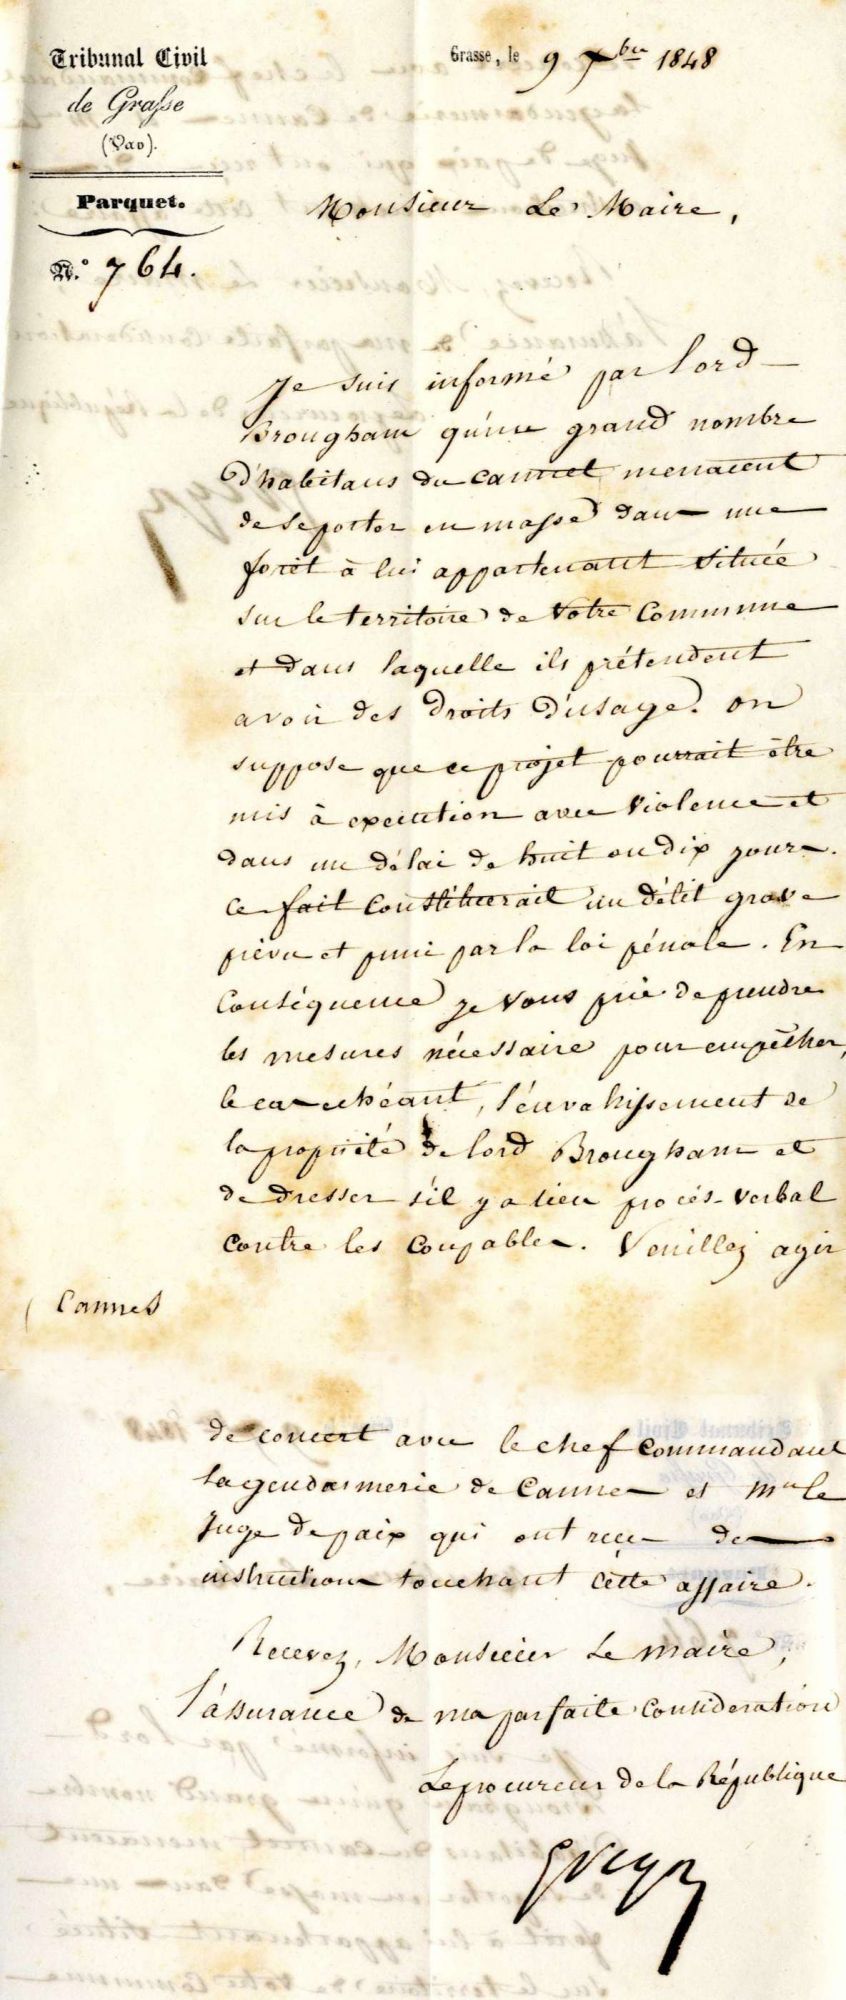 Tribunal Civil
de Grasse
(Var).
Parquet.
N.° 764.
Grasse, le 9 7bre 1848
Monsieur Le Maire,
Je suis informé par lord
Brougham qu'un grand nombre
d'habitans du cannet menacent
de se porter en masse dans une
forêt à lui appartenant située
sur le territoire de votre Commune
et dans laquelle ils prétendent
avoir des droits d'usage. on
suppose que ce projet pourrait être
mis à execution avec violence et
dans un délai de huit ou dix jours.
ce fait constituerait un délit grave
prévu et puni par la loi pénale. En
Conséquence je vous prie de prendre
les mesures nécessaire pour empêcher,
le cas echéant, l'envahissement de
la propriété de lord Brougham et
de dresser s'il y a lieu procès-verbal
contre les coupables. Veuillez agir
Cannes
de concert avec le chef commandant
la gendarmerie de Cannes et Mr le
Juge de paix qui ont reçu des
instructions touchant cette affaire.
Recevez, Monsieur Le maire,
l'assurance de ma parfaite consideration
Le procureur de la République